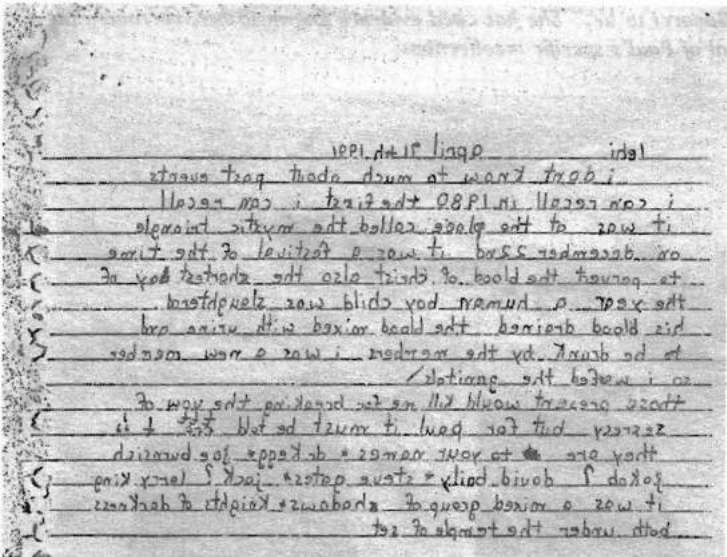 lehi april 1991
i dont know to much about past events
i can recall in 1980 the first i can recall
it was at the place called the mystic triangle
on december 22nd it was a festival of the time
to pervert the blood of christ also the shortest day of
the year a human boy child was slaughterd
his blood drained the blood mixed with urine and
to be drunk by the members i was a new member
so i wafed the ganitels
those present would kill me for breaking the vow of
sesresy but for paul it must be told
they are to your names * dr kegg * joe burnsich
jakob ? david baily * steve gates * jack ? larcy king
it was a mixed group of shadows * Knights of darkness
both under the temple of set